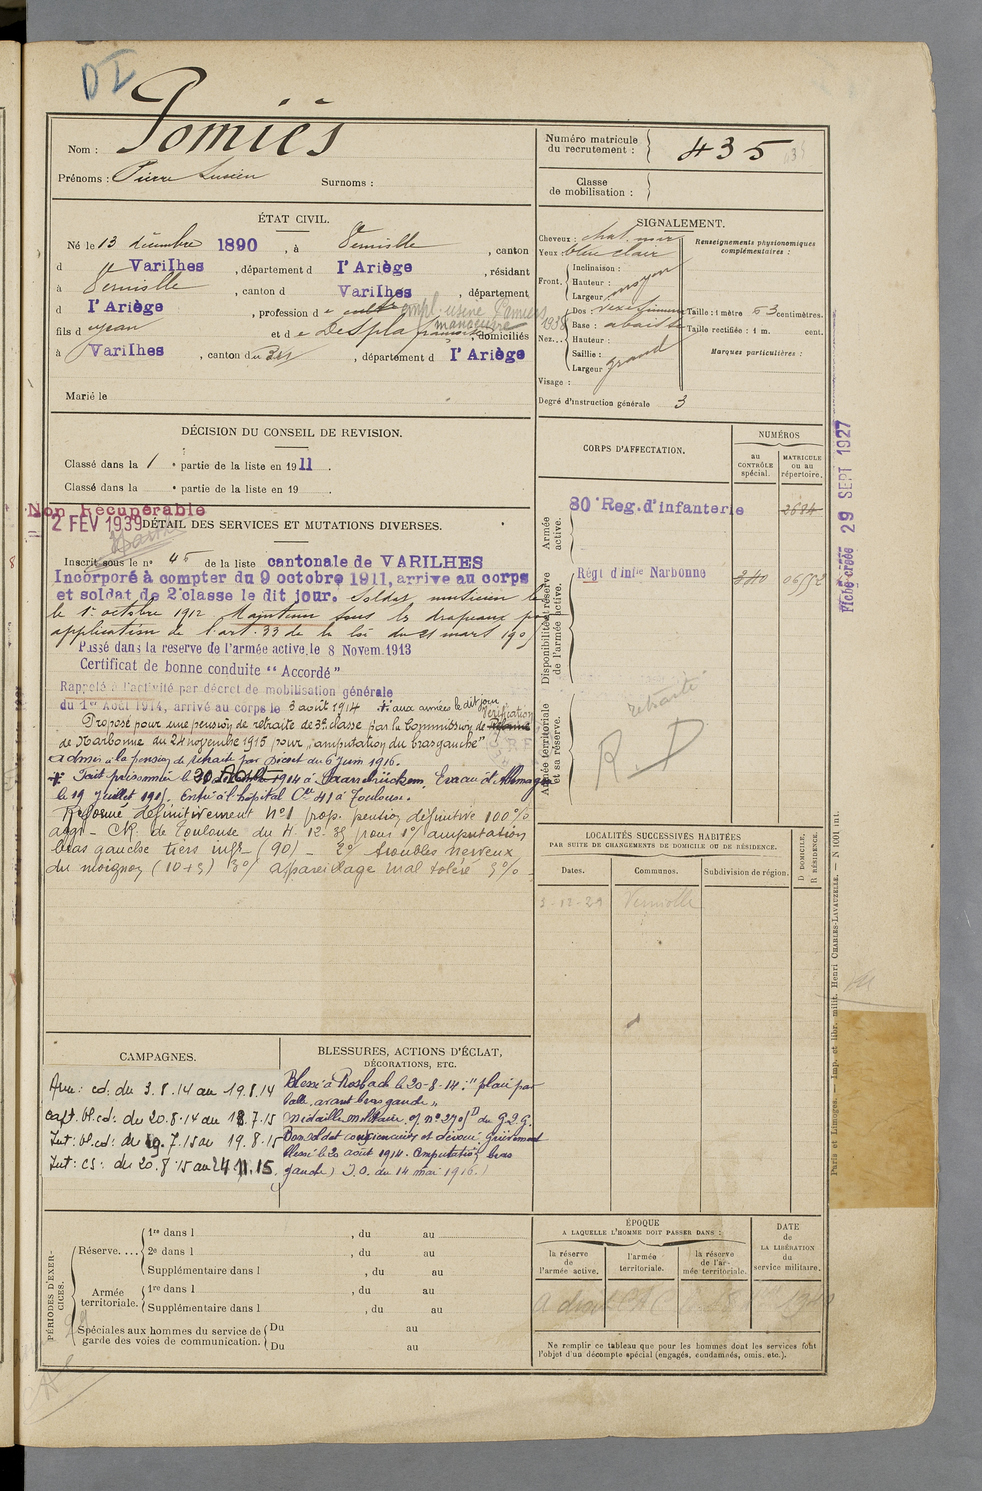 DI
Nom : Pomiès
Prénoms : Pierre Lucien Surnoms :
Numéro matricule
du recrutement : 435
Classe
de mobilisation :
ÉTAT CIVIL.
Né le 13 décembre 1890, à Verniolle, canton
d Varilhes, département d l'Ariège, résidant
à Verniolle, canton d Varilhes, département
d l'Ariège, profession de empl. usine Pamiers
manœuvre 1938
fils d Jean et de Despla françoise, domiciliés
à Varilhes, canton du dit, département d l'Ariège
Marié le
SIGNALEMENT.
Cheveux : chat. noir
Yeux bleu clair
Front. Inclinaison :
Hauteur : moyen
Largeur
Nez... Dos rectiligne
Base : abaissée
Hauteur :
Saillie :
Largeur grand
Visage :
Degré d'instruction générale 3
Renseignements physionomiques
complémentaires :
Taille : 1 mètre 63 centimètres.
Taille rectifiée : 1 m. cent.
Marques particulières :
DÉCISION DU CONSEIL DE REVISION.
Classé dans la 1e partie de la liste en 1911.
Classé dans la e partie de la liste en 19 .
Non Récupérable
2 FEV 1939
DÉTAIL DES SERVICES ET MUTATIONS DIVERSES.
Inscrit sous le n° 45 de la liste cantonale de VARILHES
Incorporé à compter du 9 octobre 1911, arrive au corps
et soldat de 2e classe le dit jour. Soldat musicien le
le 1er octobre 1912 Maintenu sous les drapeaux par
application de l'art. 33 de la loi du 21 mars 1905
Passé dans la reserve de l'armée active, le 8 Novem. 1913
Certificat de bonne conduite "Accordé"
Rappelé à l'activité par décret de mobilisation générale
du 1er Août 1914, arrivé au corps le 3 août 1914 * aux armées le dit jour
Proposé pour une pension de retraite de 3e classe par la Commission de Réforme vérification
de Narbonne du 24 novembre 1915 pour "amputation du bras gauche"
admis à la pension de retraite par Décret du 6 juin 1916.
* Fait prisonnier le 20 Août 1914 à Saarebrücken, Evacué d'Allemagne
le 19 juillet 1915. Entré à l'hôpital Cre 41 à Toulouse.
Réformé définitivement N°1 prop. pension définitive 100 %
aggr - CR. de Toulouse du 4. 12. 35 pour 1° amputation
bras gauche tiers infr - (90) - 2° troubles nerveux
du moignon (10+5) 3° appareillage mal toléré 5 % -
CORPS D'AFFECTATION.
NUMÉROS
au
CONTRÔLE
spécial.
MATRICULE
ou au
répertoire.
Armée
active.
80e Reg. d'infanterie 2684
Disponibilité et réserve
de l'armée active.
Régt d'Infie Narbonne 240 06552
Armée territoriale
et sa réserve.
retraité
R. D
Fiche créée 29 SEPT 1927
LOCALITÉS SUCCESSIVES HABITÉES
PAR SUITE DE CHANGEMENTS DE DOMICILE OU DE RÉSIDENCE.
Dates. Communes. Subdivision de région.
D DOMICILE.
R RÉSIDENCE.
3-12-29 Verniolle
CAMPAGNES.
Arm : cd : du 3. 8. 14 au 19. 8. 14
Capt. bl. cd : du 20. 8. 14 au 18. 7. 15
Int : bl. cd : du 19. 7. 15 au 19. 8. 15
Int : cs : du 20. 8. 15 au 24. 11. 15.
BLESSURES, ACTIONS D'ÉCLAT,
DÉCORATIONS, ETC.
Blessé à Rosbach le 20-8-14 : "plaie par
balle, avant bras gauche"
Médaille militaire of n° 2705 D du G.Q.G.
Bon soldat consciencieux et dévoué. Grièvement
blessé le 20 août 1914. Amputation bras
gauche) J.O. du 14 mai 1916.
PÉRIODES D'EXERCICES.
Réserve....
1re dans l , du au
2e dans l , du au
Supplémentaire dans l , du au
Armée
territoriale.
1re dans l , du au
Supplémentaire dans l , du au
Spéciales aux hommes du service de
garde des voies de communication.
Du au
Du au
ÉPOQUE
A LAQUELLE L'HOMME DOIT PASSER DANS :
la réserve
de
l'armée active.
l'armée
territoriale.
la réserve
de l'ar-
mée territoriale.
DATE
de
LA LIBÉRATION
du
service militaire.
Ne remplir ce tableau que pour les hommes dont les services font
l'objet d'un décompte spécial (engagés, condamnés, omis, etc.).
Paris et Limoges. — Imp. et libr. milit. Henri CHARLES-LAVAUZELLE. — N 1001 int.